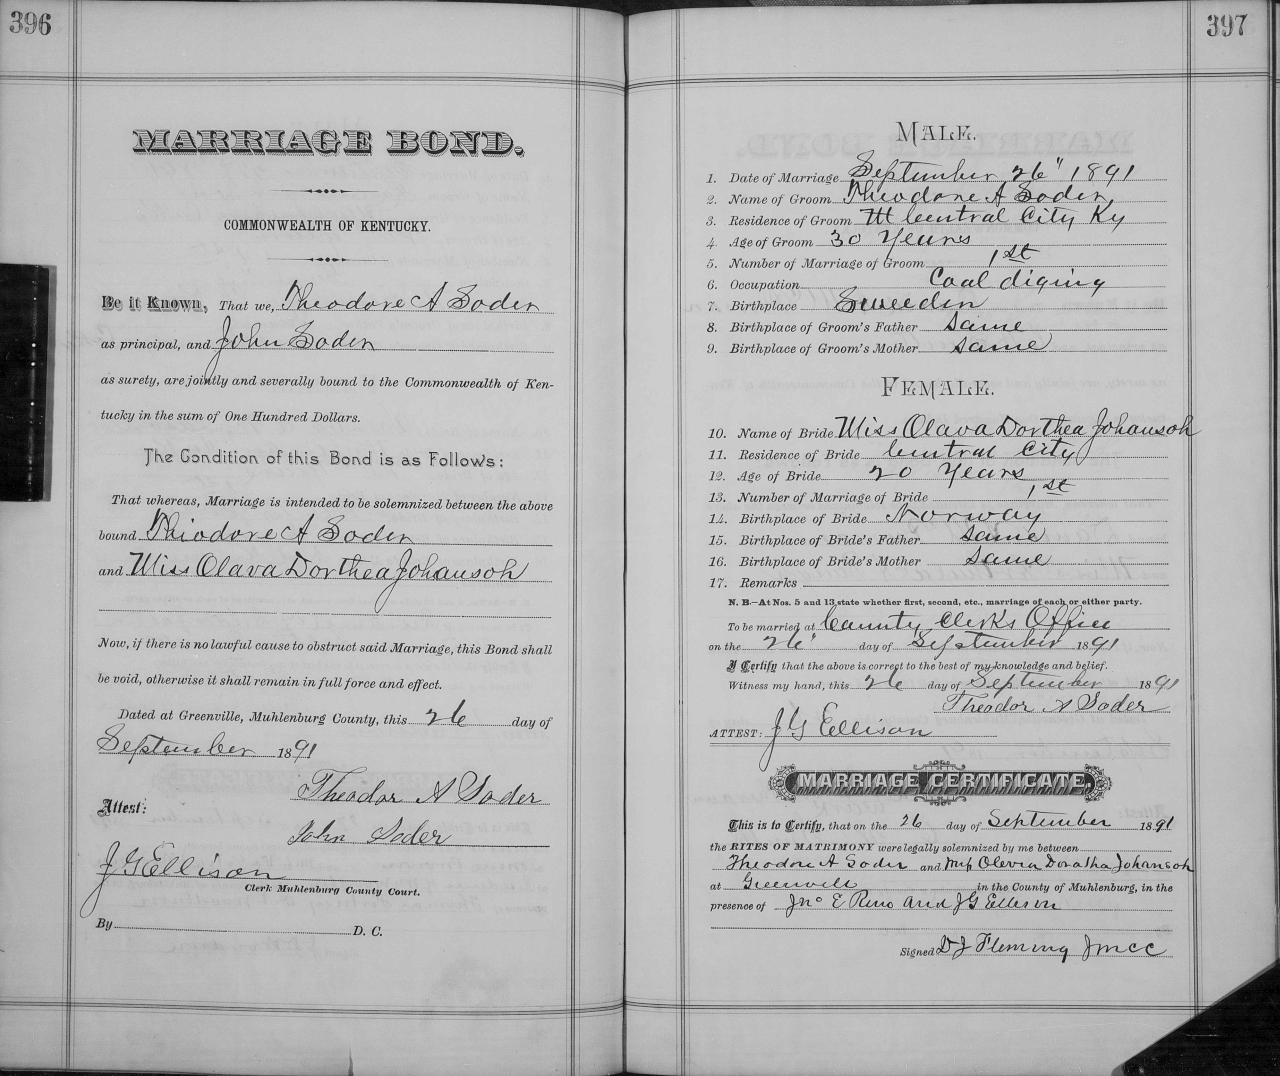 396
MARRIAGE BOND.
COMMONWEALTH OF KENTUCKY.
Be it Known, That we, Theodore A Soder
as principal, and John Soder
as surety, are jointly and severally bound to the Commonwealth of Ken-
tucky in the sum of One Hundred Dollars.
The Condition of this Bond is as Follows:
That whereas, Marriage is intended to be solemnized between the above
bound Thiodore A Soder
and Miss Olava Dorthea Johanson
Now, if there is no lawful cause to obstruct said Marriage, this Bond shall
be void, otherwise it shall remain in full force and effect.
Dated at Greenville, Muhlenburg County, this 26 day of
September 1891
Theodor A Soder
Attest:
John Soder
J G Ellison
Clerk Muhlenburg County Court.
By D. C.
397
MALE.
1. Date of Marriage September 26" 1891
2. Name of Groom Theodore A Soder
3. Residence of Groom Central City Ky
4. Age of Groom 30 Years
5. Number of Marriage of Groom 1st
6. Occupation Coal diging
7. Birthplace Sweeden
8. Birthplace of Groom's Father same
9. Birthplace of Groom's Mother same
FEMALE.
10. Name of Bride Miss Olava Dorthea Johanson
11. Residence of Bride Central City
12. Age of Bride 20 Years
13. Number of Marriage of Bride 1st
14. Birthplace of Bride Norway
15. Birthplace of Bride's Father same
16. Birthplace of Bride's Mother same
17. Remarks
N. B.—At Nos. 5 and 13 state whether first, second, etc., marriage of each or either party.
To be married at County Clerks Office
on the 26" day of September 1891
I Certify that the above is correct to the best of my knowledge and belief.
Witness my hand, this 26 day of September 1891
Theodor A Soder
ATTEST: J G Ellison
MARRIAGE CERTIFICATE.
This is to Certify, that on the 26 day of September 1891
the RITES OF MATRIMONY were legally solemnized by me between
Theodore A Soder and Miss Olevia Doratha Johanson
at Greenvill in the County of Muhlenburg, in the
presence of Jno E Reno and J G Ellison
Signed D J Fleming J M C C